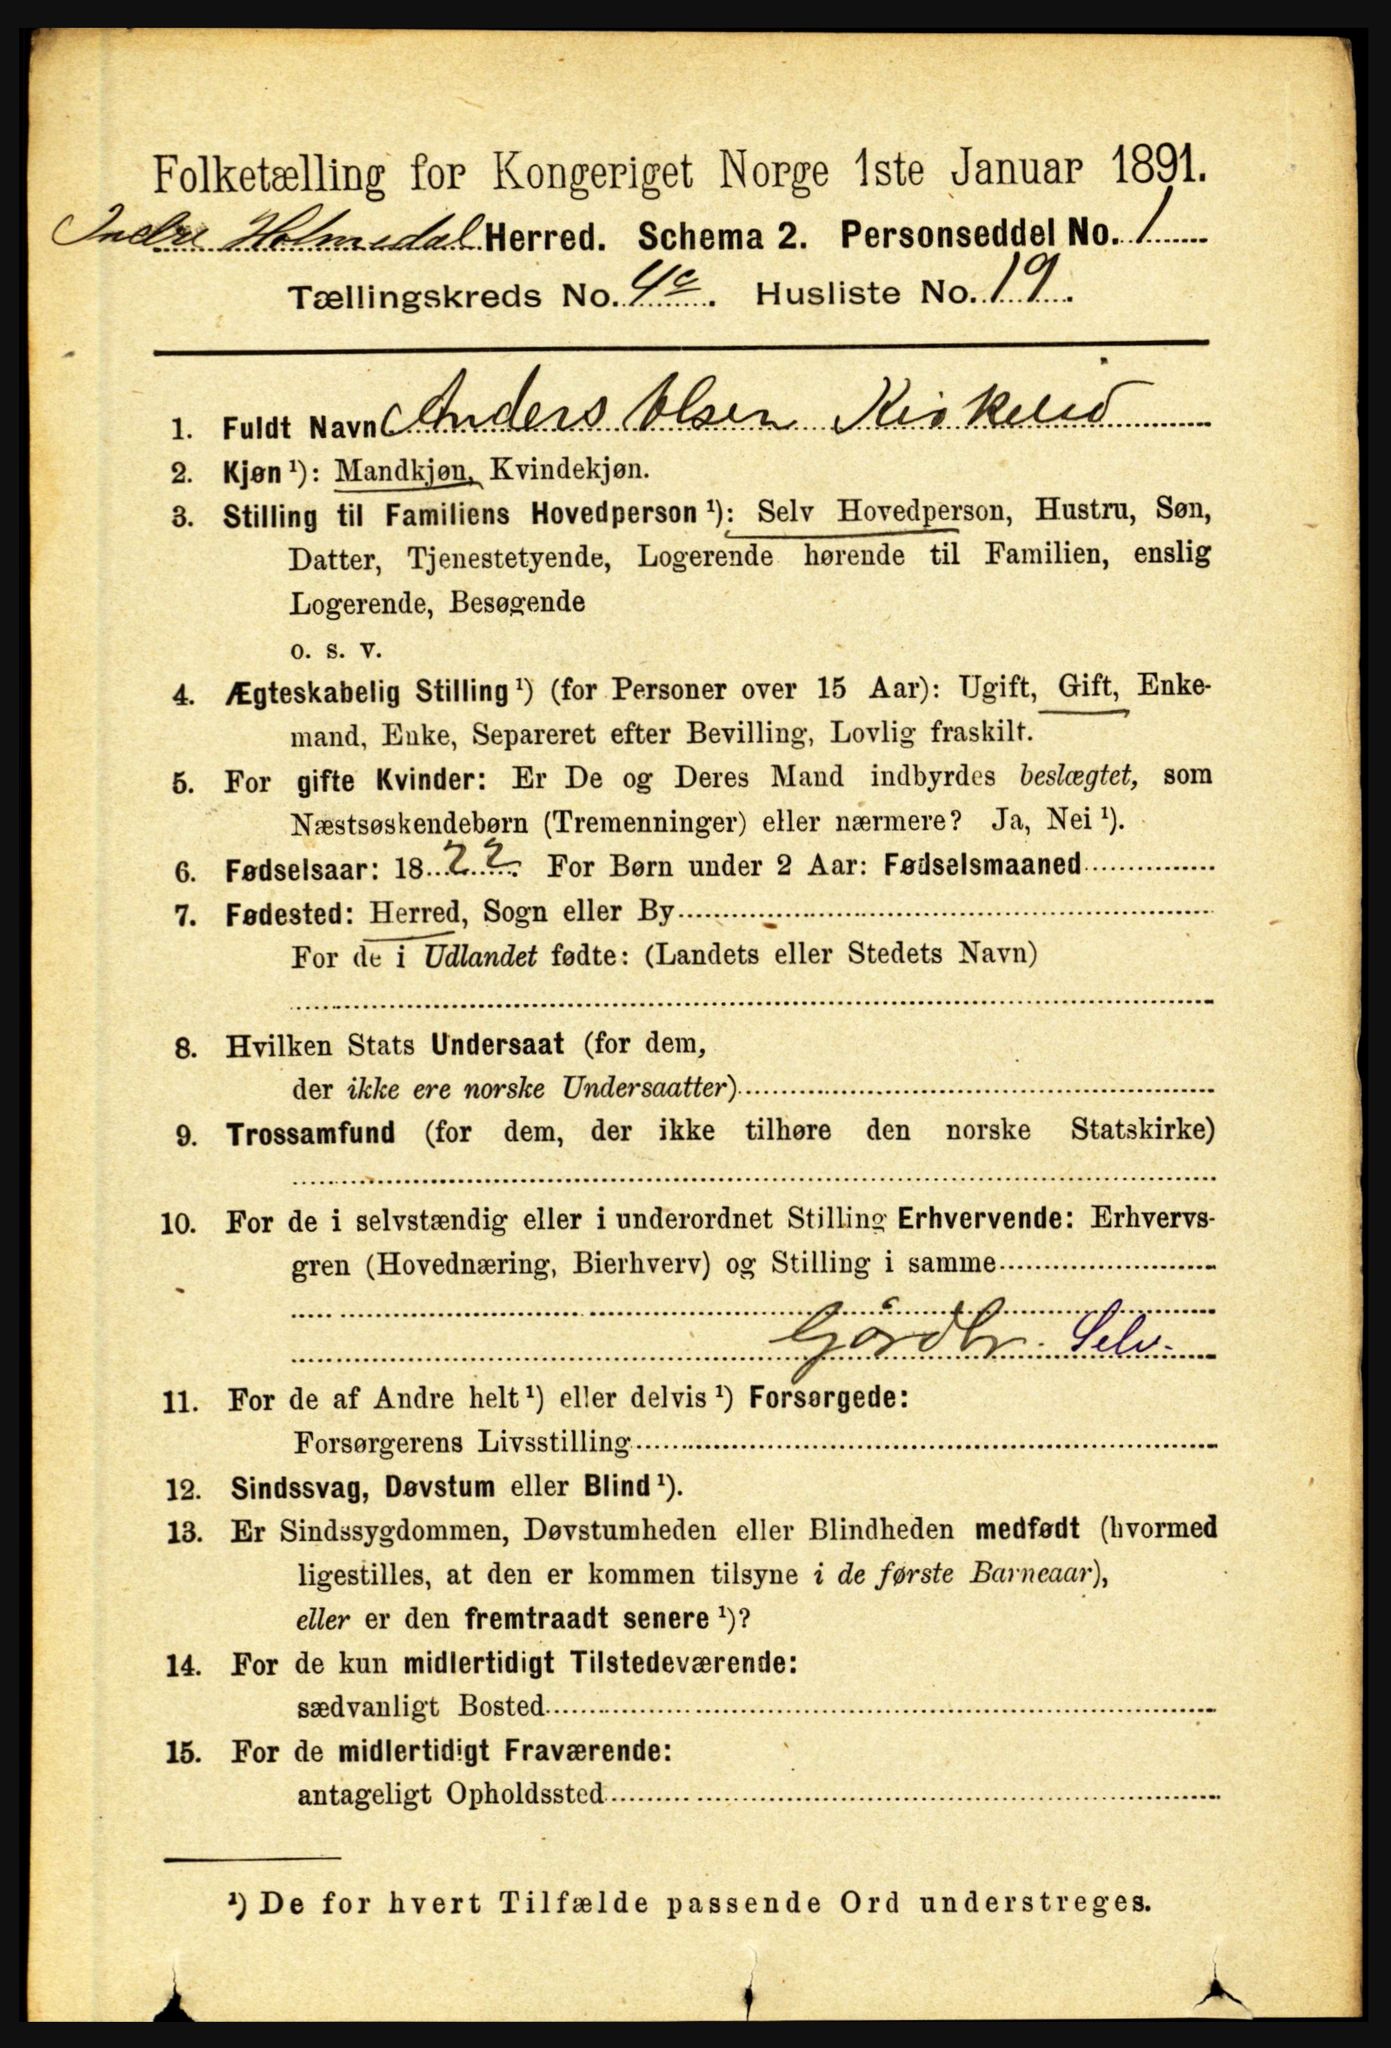 Folketælling for Kongeriget Norge 1ste Januar 1891.
Indre Holmedal Herred. Schema 2. Personseddel No. 1
Tællingskreds No. 4c. Husliste No. 19.
1. Fuldt Navn Anders Olsen Kirkelid
2. Kjøn ¹): Mandkjøn, Kvindekjøn.
3. Stilling til Familiens Hovedperson ¹): Selv Hovedperson, Hustru, Søn,
Datter, Tjenestetyende, Logerende hørende til Familien, enslig
Logerende, Besøgende
o. s. v.
4. Ægteskabelig Stilling ¹) (for Personer over 15 Aar): Ugift, Gift, Enke-
mand, Enke, Separeret efter Bevilling, Lovlig fraskilt.
5. For gifte Kvinder: Er De og Deres Mand indbyrdes beslægtet, som
Næstsøskendebørn (Tremenninger) eller nærmere? Ja, Nei ¹).
6. Fødselsaar: 1822. For Børn under 2 Aar: Fødselsmaaned
7. Fødested: Herred, Sogn eller By
For de i Udlandet fødte: (Landets eller Stedets Navn)
8. Hvilken Stats Undersaat (for dem,
der ikke ere norske Undersaatter)
9. Trossamfund (for dem, der ikke tilhøre den norske Statskirke)
10. For de i selvstændig eller i underordnet Stilling Erhvervende: Erhvervs-
gren (Hovednæring, Bierhverv) og Stilling i samme
Gårdbr. Selv.
11. For de af Andre helt ¹) eller delvis ¹) Forsørgede:
Forsørgerens Livsstilling
12. Sindssvag, Døvstum eller Blind ¹).
13. Er Sindssygdommen, Døvstumheden eller Blindheden medfødt (hvormed
ligestilles, at den er kommen tilsyne i de første Barneaar),
eller er den fremtraadt senere ¹)?
14. For de kun midlertidigt Tilstedeværende:
sædvanligt Bosted
15. For de midlertidigt Fraværende:
antageligt Opholdssted
¹) De for hvert Tilfælde passende Ord understreges.